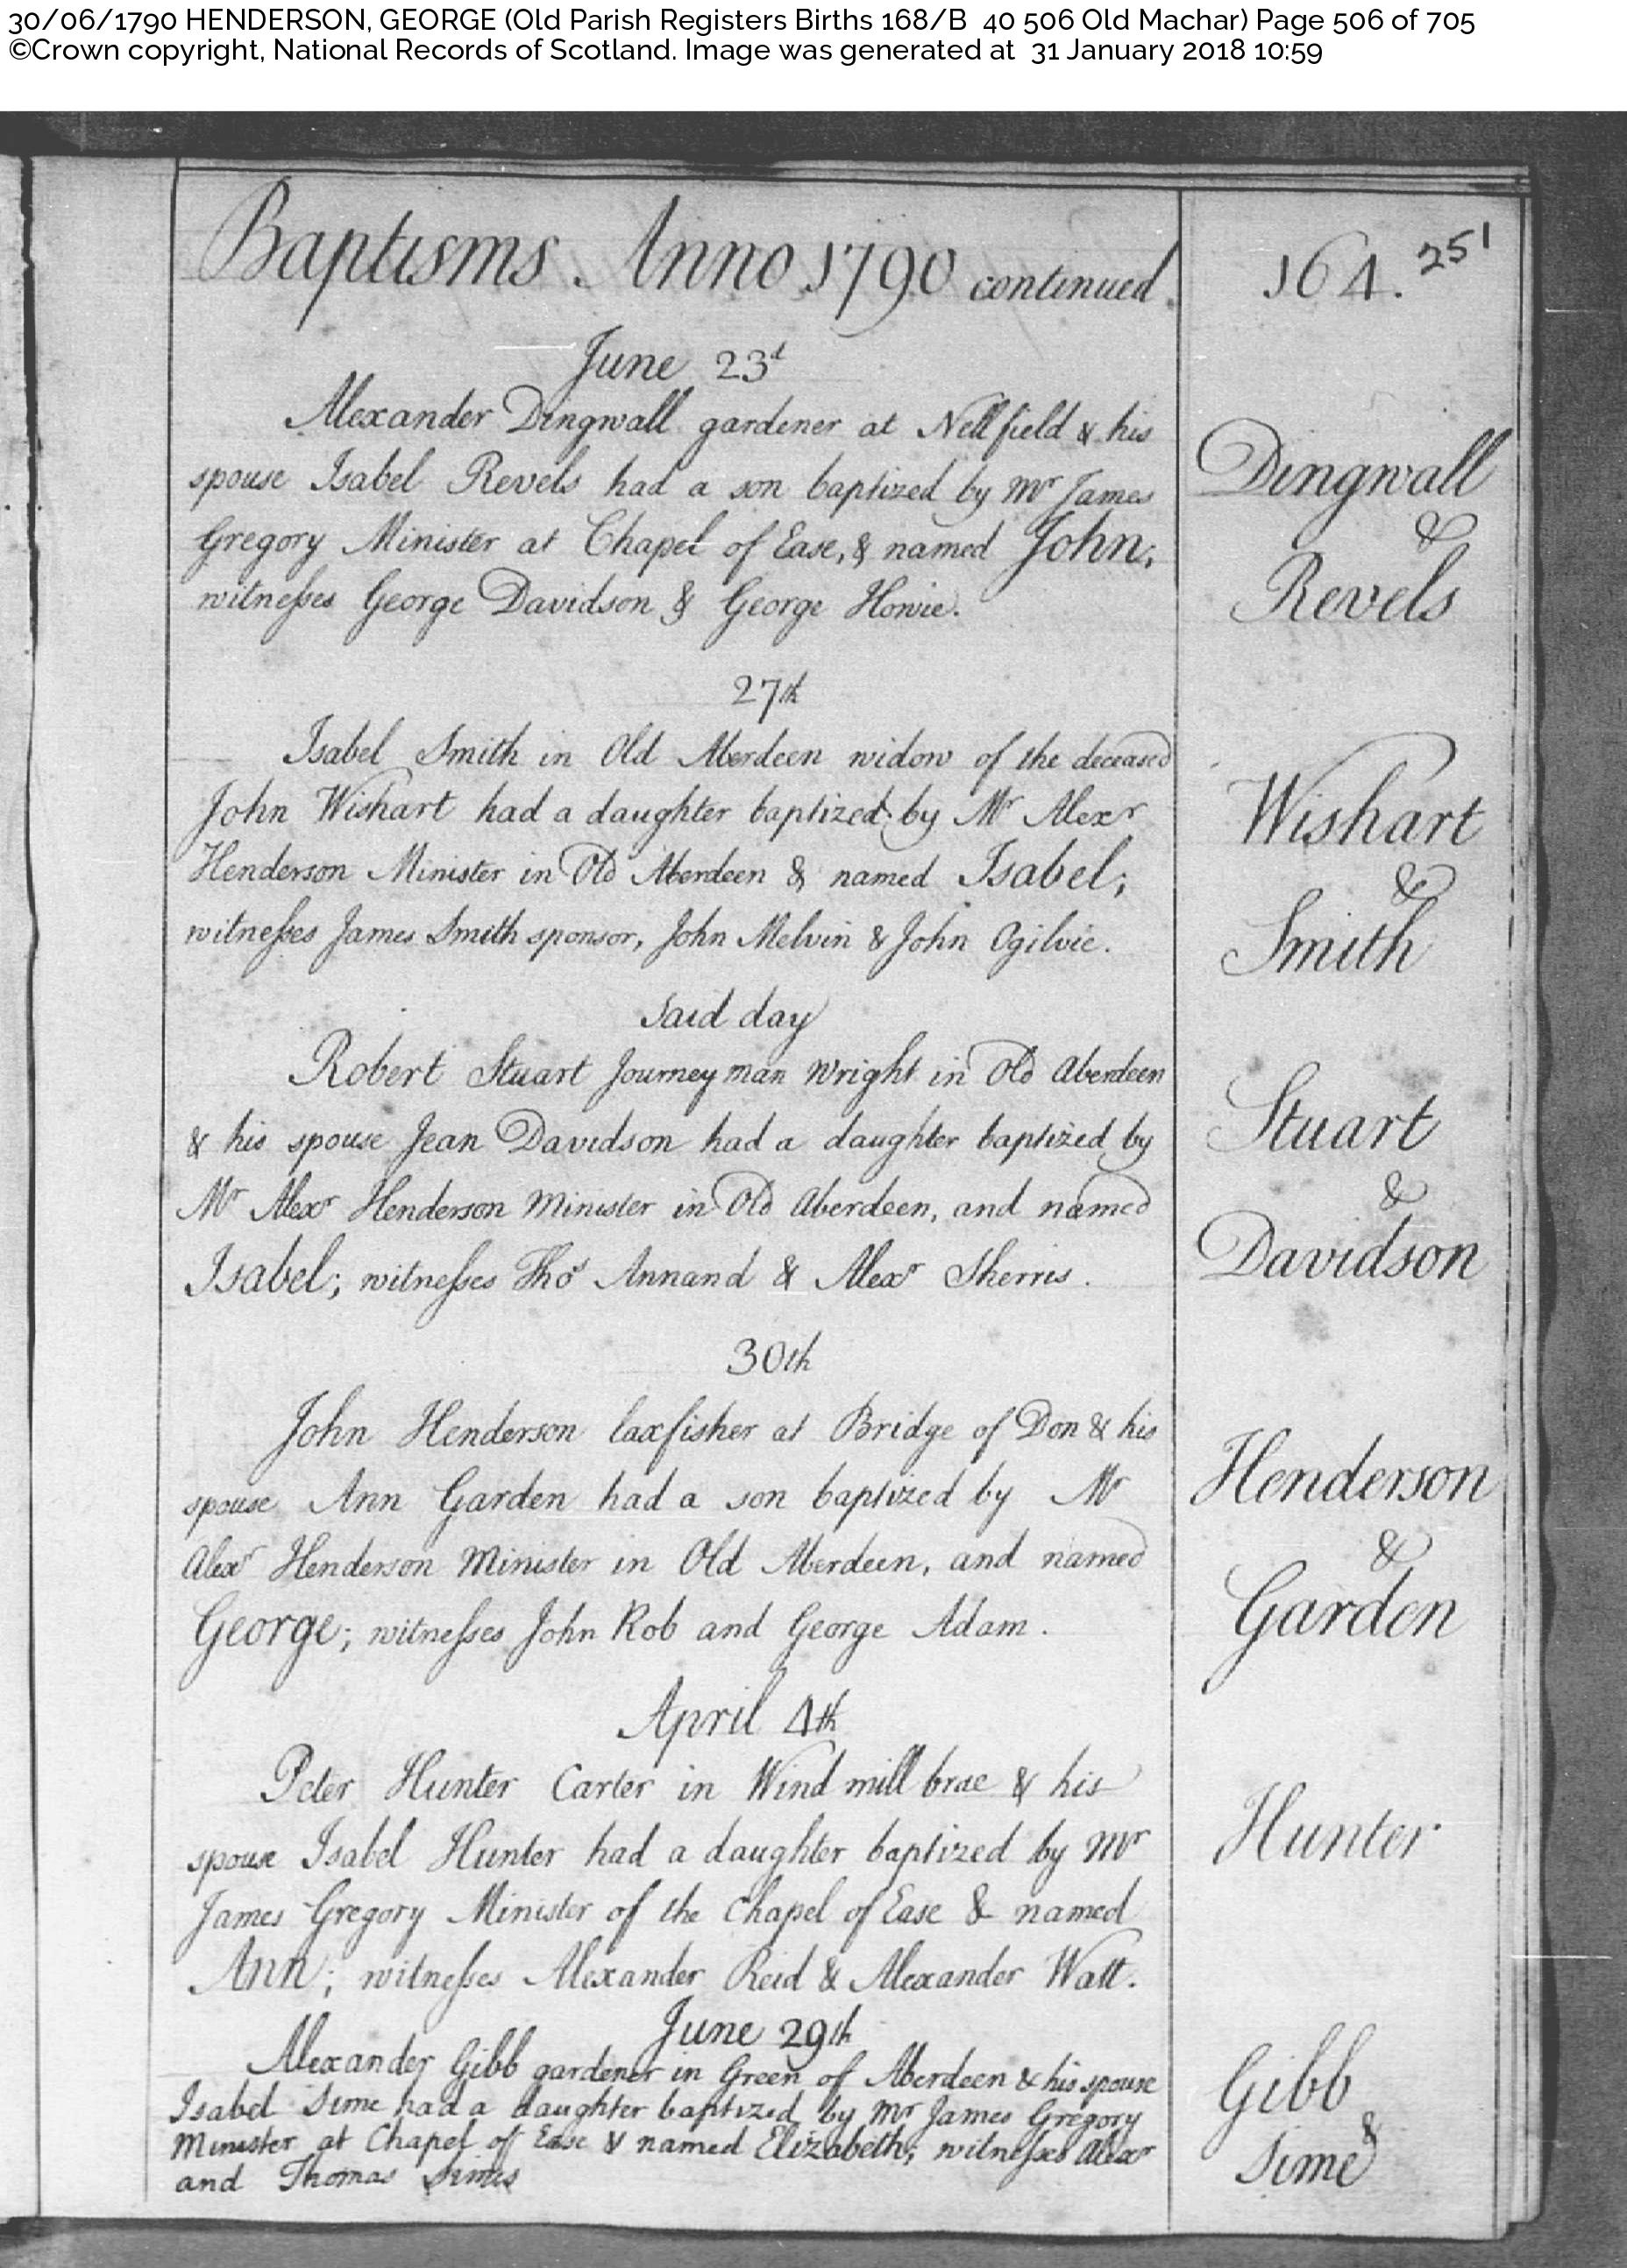 30/06/1790 HENDERSON, GEORGE (Old Parish Registers Births 168/B 40 506 Old Machar) Page 506 of 705
©Crown copyright, National Records of Scotland. Image was generated at 31 January 2018 10:59
Baptisms Anno 1790 continued.
164. 251
June 23d
Alexander Dingwall gardener at Nellfield & his
spouse Isabel Revels had a son baptized by Mr James
Gregory Minister at Chapel of Ease, & named John;
witnesses George Davidson & George Howie.
Dingwall
&
Revels
27th
Isabel Smith in Old Aberdeen widow of the deceased
John Wishart had a daughter baptized by Mr Alexr
Henderson Minister in Old Aberdeen & named Isabel;
witnesses James Smith sponsor, John Melvin & John Ogilvie.
Wishart
&
Smith
Said day
Robert Stuart Journeyman wright in Old Aberdeen
& his spouse Jean Davidson had a daughter baptized by
Mr Alexr Henderson Minister in Old Aberdeen, and named
Isabel; witnesses Thos Annand & Alexr Sherris.
Stuart
&
Davidson
30th
John Henderson laxfisher at Bridge of Don & his
spouse Ann Garden had a son baptized by Mr
Alexr Henderson Minister in Old Aberdeen, and named
George; witnesses John Rob and George Adam.
Henderson
&
Garden
April 4th
Peter Hunter Carter in Wind mill brae & his
spouse Isabel Hunter had a daughter baptized by Mr
James Gregory Minister of the Chapel of Ease & named
Ann; witnesses Alexander Reid & Alexander Watt.
Hunter
June 29th
Alexander Gibb gardener in Green of Aberdeen & his spouse
Isabel Sime had a daughter baptized by Mr James Gregory
Minister at Chapel of Ease & named Elizabeth; witnesses Alexr
and Thomas Simes
Gibb
&
Sime